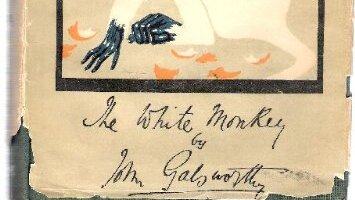 The White Monkey
by
John Galsworthy